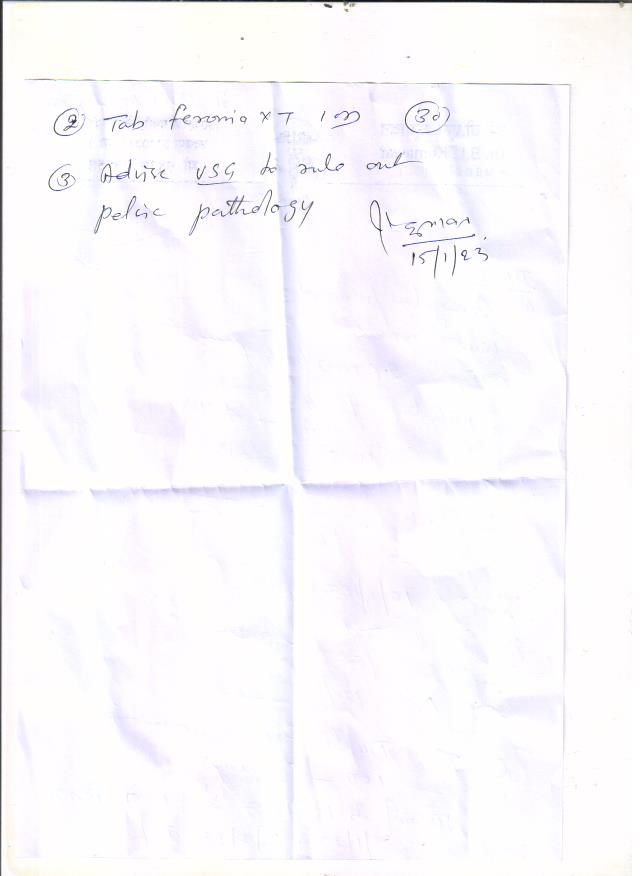 ② Tab feronia XT 1 OD (30)
③ Advise USG to rule out
pelvic pathology
15/1/23